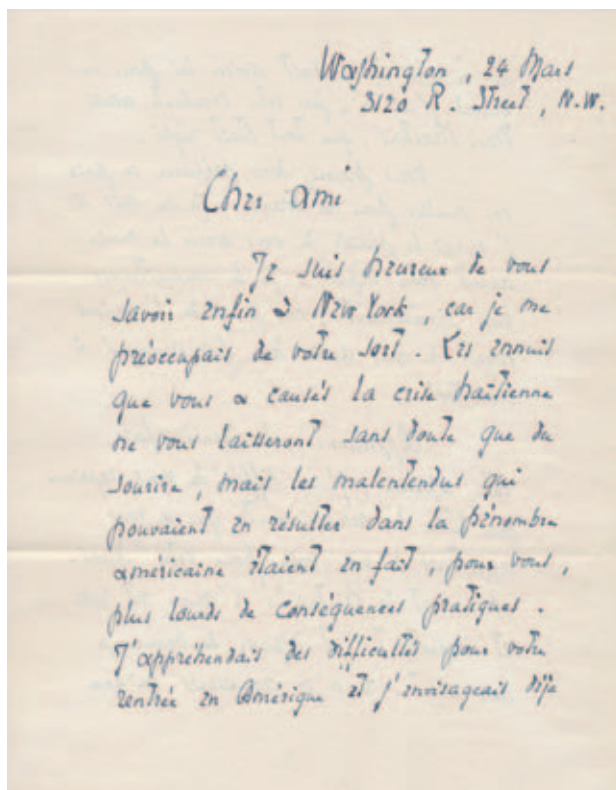 Washington, 24 Mars
3120 R. Street, N.W.
Cher ami
Je suis heureux de vous
savoir enfin à New York, car je me
préoccupais de votre sort. Les ennuis
que vous a causés la crise haïtienne
ne vous laisseront sans doute que du
sourire, mais les malentendus qui
pouvaient en résulter dans la pénombre
américaine étaient en fait, pour vous,
plus lourds de conséquences pratiques.
J'appréhendais des difficultés pour votre
rentrée en Amérique et j'envisageais déjà